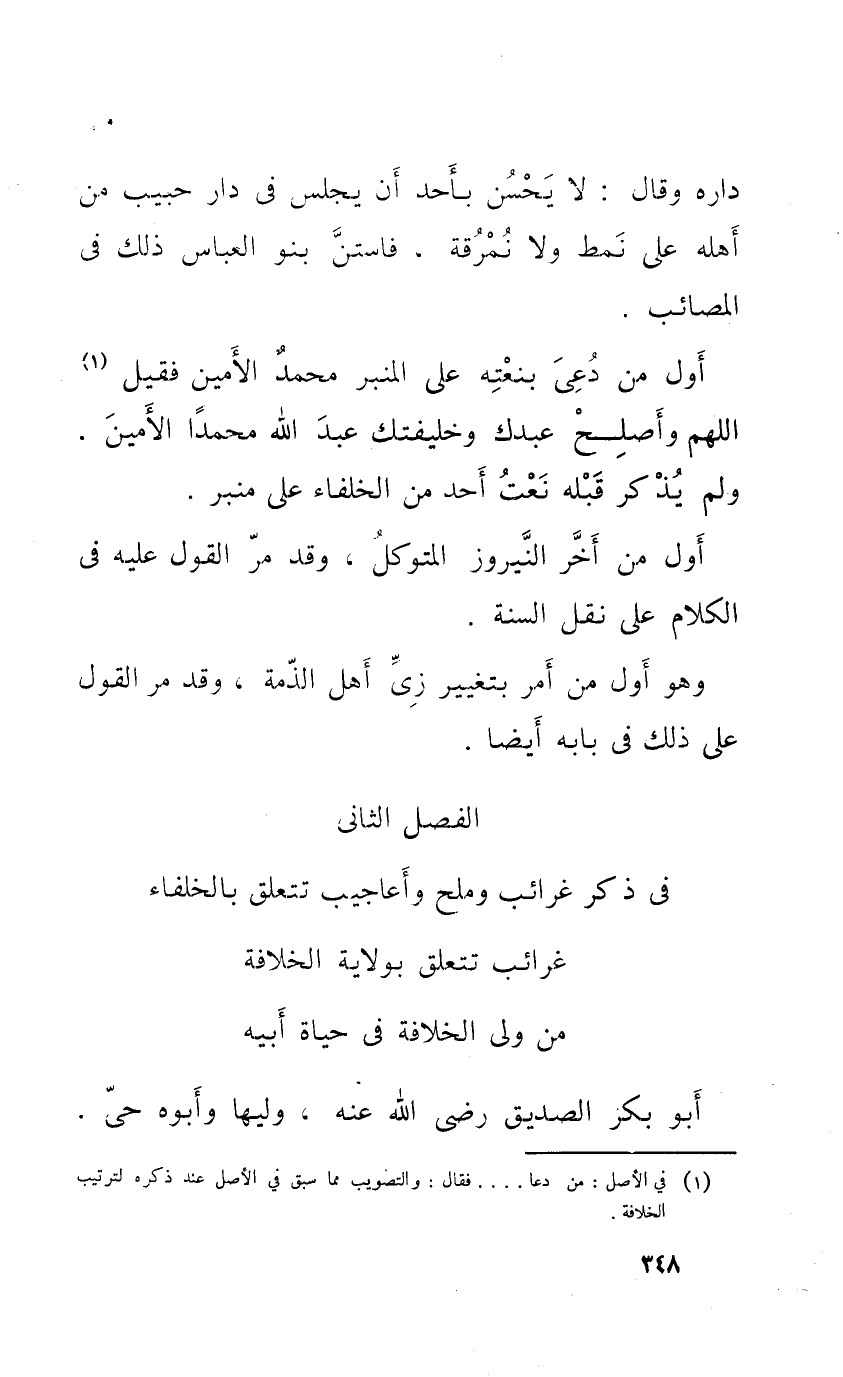 داره وقال : لا يَحْسُن بأَحد أَن يجلس فى دار حبيب من
أَهله على نَمط ولا نُمْرُقة . فاستنَّ بنو العباس ذلك فى
المصائب .
أَول من دُعِىَ بنعْتِه على المنبر محمدٌ الأَمين فقيل (١)
اللهم وأَصلِحْ عبدك وخليفتك عبدَ الله محمدًا الأَمينَ .
ولم يُذْكر قَبْله نَعْتُ أَحد من الخلفاء على منبر .
أَول من أَخَّر النَّيروز المتوكلُ ، وقد مرّ القول عليه فى
الكلام على نقل السنة .
وهو أَول من أَمر بتغيير زِىِّ أَهل الذّمة ، وقد مر القول
على ذلك فى بابه أَيضا .
الفصل الثانى
فى ذكر غرائب وملح وأَعاجيب تتعلق بالخلفاء
غرائب تتعلق بولاية الخلافة
من ولى الخلافة فى حياة أَبيه
أَبو بكر الصديق رضى الله عنه ، وليها وأَبوه حىّ .
(١) في الأصل : من دعا .... فقال : والتصويب مما سبق في الأصل عند ذكره لترتيب
الخلافة .
٣٤٨